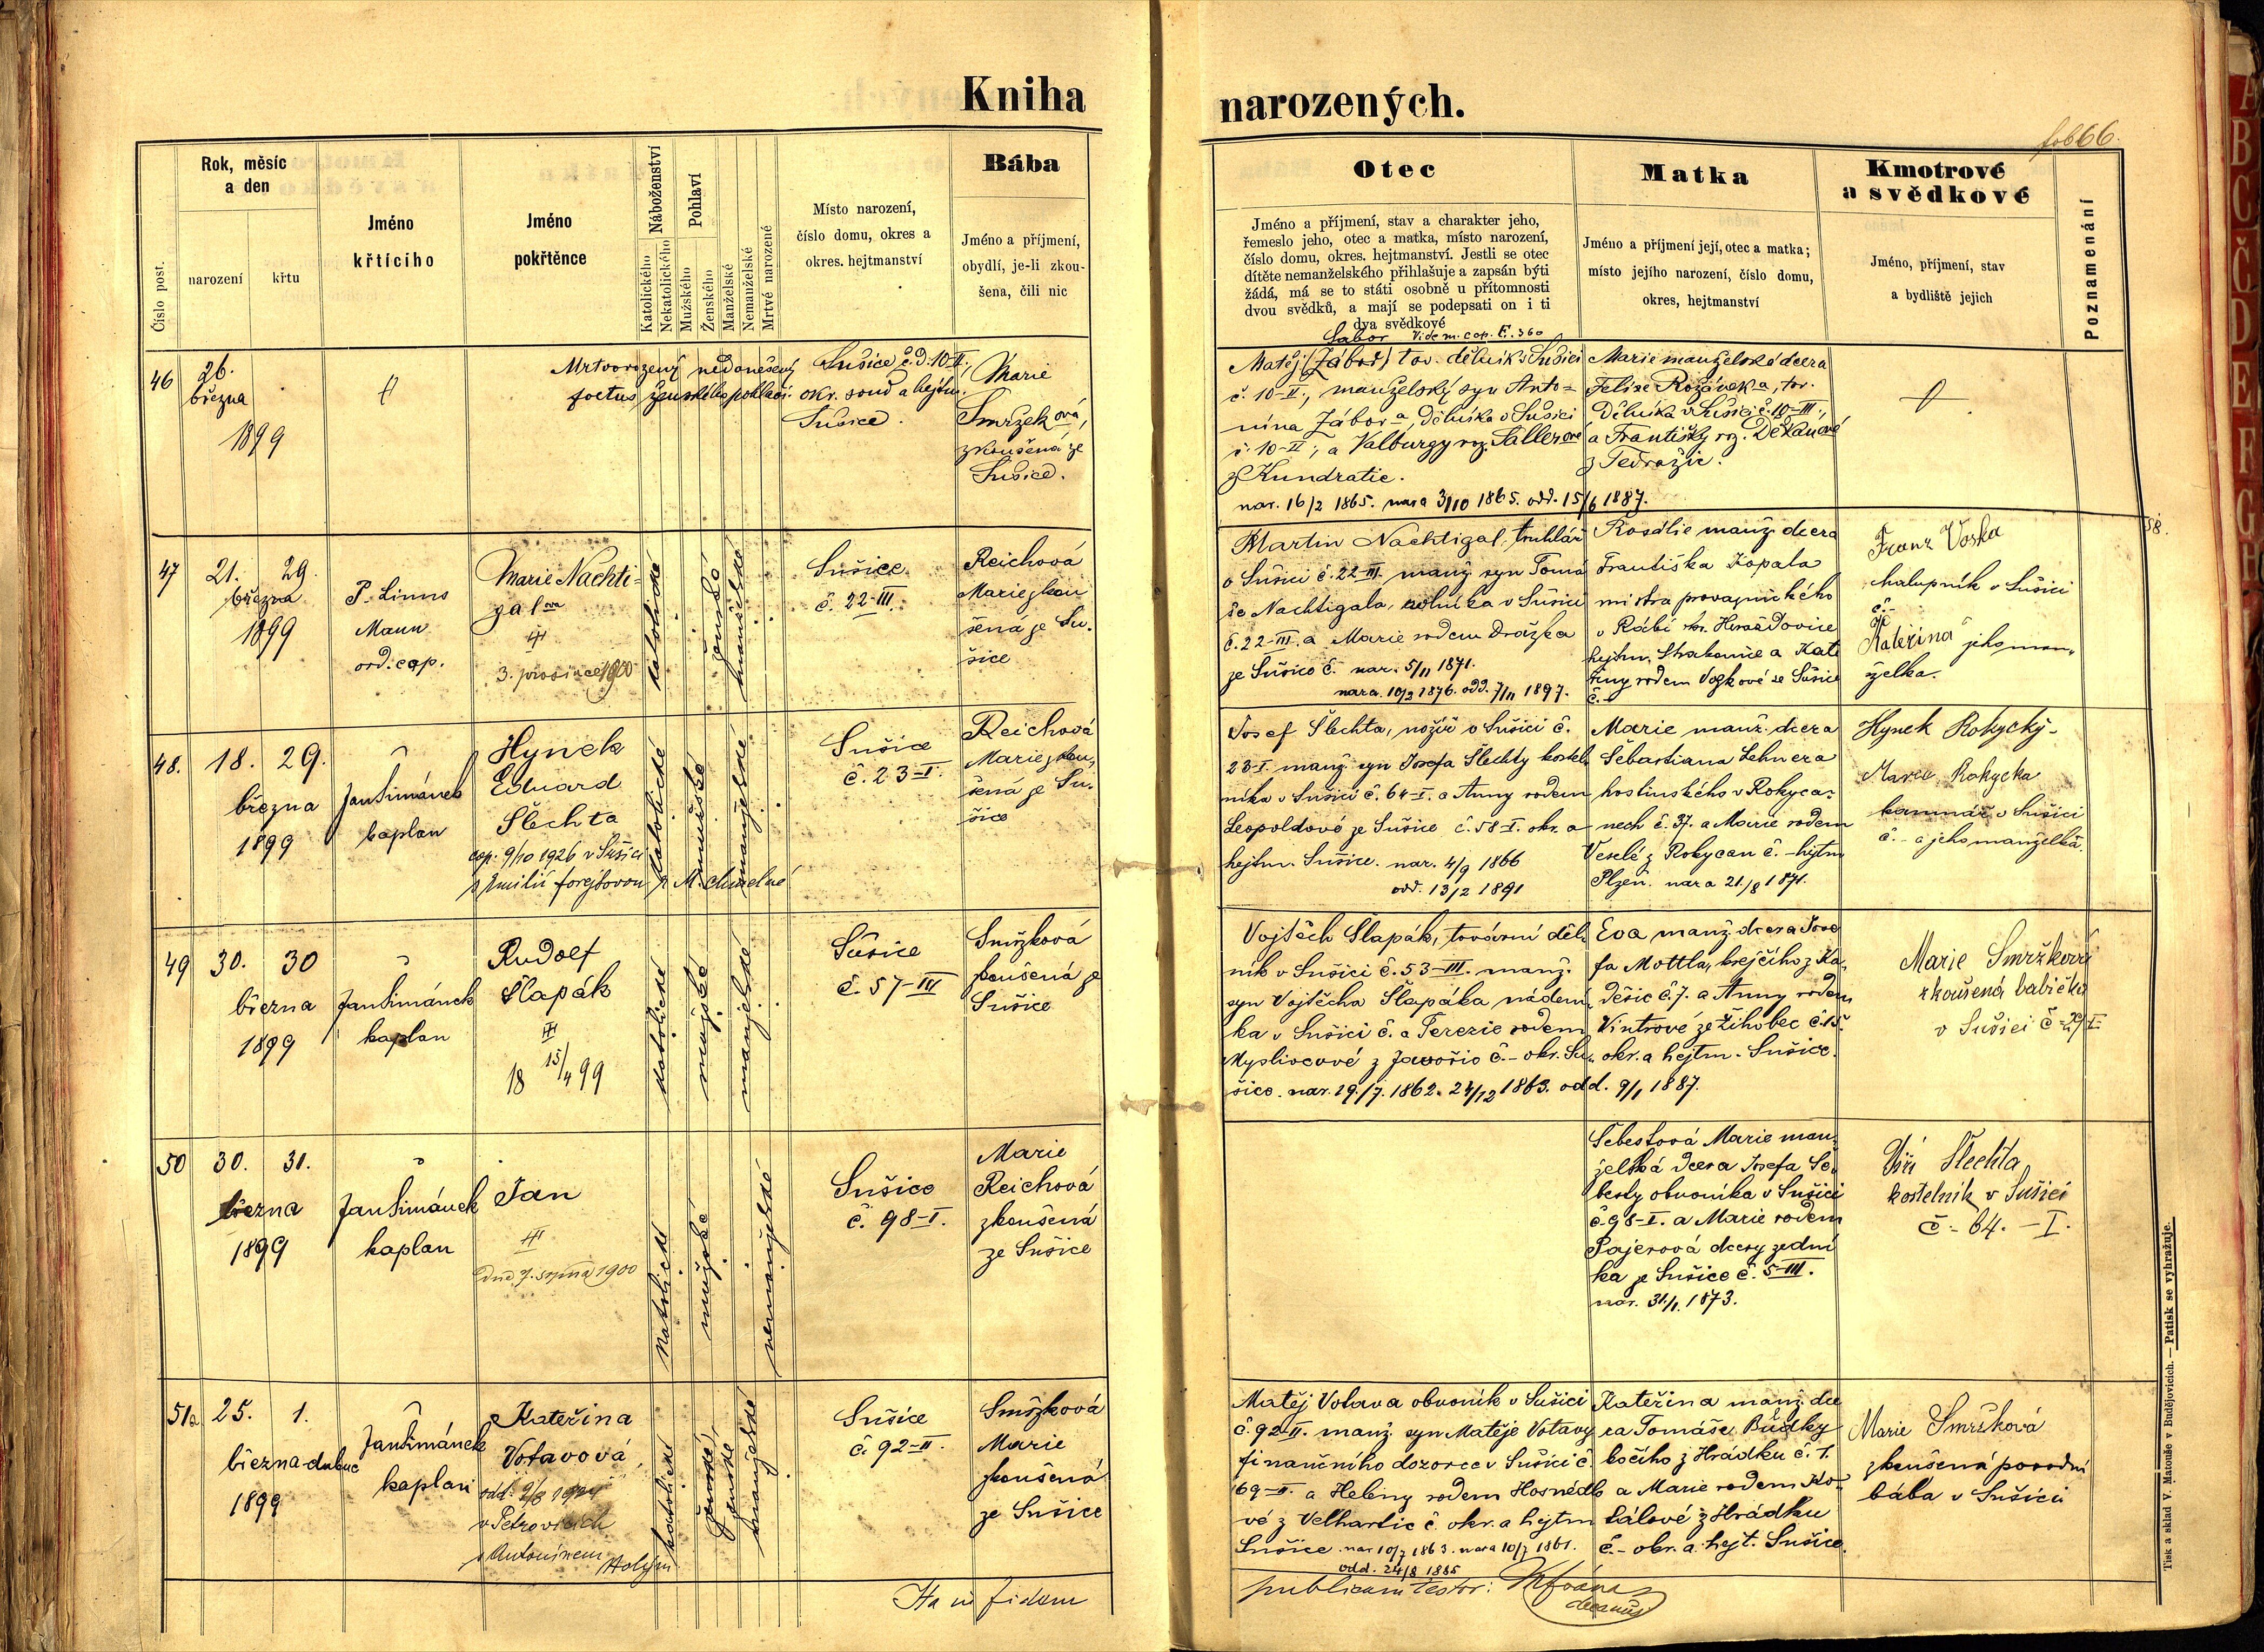 Kniha narozených.
fol 66.
Číslo post.
Rok, měsíc
a den
narození
křtu
Jméno
křtícího
Jméno
pokřtěnce
Náboženství
Katolického
Nekatolického
Pohlaví
Mužského
Ženského
Manželské
Nemanželské
Mrtvé narozené
Místo narození,
číslo domu, okres a
okres. hejtmanství
Bába
Jméno a příjmení,
obydlí, je-li zkou-
šena, čili nic
Otec
Jméno a příjmení, stav a charakter jeho,
řemeslo jeho, otec a matka, místo narození,
číslo domu, okres. hejtmanství. Jestli se otec
dítěte nemanželského přihlašuje a zapsán býti
žádá, má se to státi osobně u přítomnosti
dvou svědků, a mají se podepsati on i ti
dva svědkové
Matka
Jméno a příjmení její, otec a matka;
místo jejího narození, číslo domu,
okres, hejtmanství
Kmotrové
a svědkové
Jméno, příjmení, stav
a bydliště jejich
Poznamenání
46
26.
března
1899
Mrtvorozený nedonešený
foetus ženského pohlaví.
Sušice č. d. 10-II.,
okr. soud a hejtm.
Sušice.
Marie
Smržková,
zkoušená ze
Sušice.
Sabor Vide m. cop. F. 360
Matěj (Záboř) tov. dělník v Sušici
č. 10-II., manželský syn Anto=
nína Zábora, dělníka v Sušici
č. 10-II., a Valburgy roz. Sallerové
z Kundratic.
nar. 16/2 1865. nara 3/10 1865. odd. 15/6 1887.
Marie manželská dcera
Felixe Rožánka, tov.
dělníka v Sušici č. 10-III.,
a Františky roz. Děkanové
z Tedražic.
47
21. 29.
března
1899
P. Linus
Mann
ord. cap.
Marie Nachti=
galova
3. prosince 1900
katolické
ženské
manželské
Sušice
č. 22-III.
Reichová
Marie zkou
šená ze Su-
šice
Martin Nachtigal, truhlář
v Sušici č. 22-III. manž. syn Tomá
še Nachtigala, rolníka v Sušici
č. 22-III. a Marie rodem Drázka
ze Sušice č. nar. 5/11 1871.
nara. 10/3 1876. odd. 7/11 1897.
Rosálie manž. dcera
Františka Kopala
mistra provaznického
v Rábí okr. Horažďovice
hejtm. Strakonice a Kate
řiny rodem Voskové ze Sušice
č. -
Franz Voska
chalupník v Sušici
č. -
Kateřina jeho man-
želka.
48.
18. 29.
března
1899
Jan Šimánek
kaplan
Hynek
Eduard
Šlechta
cop. 9/10 1926 v Sušici
s Emilií Forejtovou
katolické
mužské
manželské
Sušice
č. 23-I.
Reichová
Marie zkou,
šená ze Su-
šice
Josef Šlechta, nožíř v Sušici č.
23-I. manž. syn Josefa Šlechty kostel
níka v Sušici č. 64-I. a Anny rodem
Leopoldové ze Sušice č. 58-I. okr. a
hejtm. Sušice. nar. 4/9 1866
odd. 13/2 1891
Marie manž. dcera
Šebastiana Lehnera
hostinského v Rokyca-
nech č. 37. a Marie rodem
Veselé z Rokycan č. - hejtm
Plzeň. nara 21./8 1871.
Hynek Rokycký -
Marie Rokycka
v Sušici
č. - a jeho manželka.
49
30. 30
března
1899
Jan Šimánek
kaplan
Rudolf
Šlapák
18 15/4 99
katolické
mužské
manželské
Sušice
č. 57-IV
Smržková
zkoušená ze
Sušice
Vojtěch Šlapák, tovární děl
ník v Sušici č. 53-III. manž.
syn Vojtěcha Šlapáka nádení,
ka v Sušici č. a Terezie rodem
Myslivcové z Javoří č. - okr. Su,
šice. nar. 29./7. 1862. 24/12 1863. odd. 9/1 1887.
Eva, manž. dcera Jose
fa Mottla, krejčího z Ka,
děšic č. 7. a Anny rodem
Vintrové ze Žihobec č. 15
okr. a hejtm. Sušice.
Marie Smržková
zkoušená babička
v Sušici
50
30. 31.
března
1899
Jan Šimánek
kaplan
Jan
Dne 7. srpna 1900
katolické
mužské
nemanželské
Sušice
č. 98-I.
Marie
Reichová
zkoušená
ze Sušice
Šebestová Marie man,
želská dcera Josefa Še,
besty obuvníka v Sušici
č. 98-I. a Marie rodem
Pajerová dcery zední
ka ze Sušice č. 5-III.
nar. 31./1. 1873.
Jiří Šlechta
kostelník v Sušici
č - 64. - I.
51a
25. 1.
března-dubna
1899
Jan Šimánek
kaplan
Kateřina
Votavová
v Petrovicích
s Antonínem Holým
katolické
ženské
ženské
manželské
Sušice
č. 92-II.
Smržková
Marie
zkoušená
ze Sušice
Matěj Votava obuvník v Sušici
č. 92-II. manž. syn Matěje Votavy
finančního dozorce v Sušici č.
169-II. a Heleny rodem Hosnédlo
vé z Velhartic č. okr. a hejtm
Sušice nar 10/7 1863. nara 10/7 1861.
odd. 24/8 1885
Kateřina manž. dce
ra Tomáše Bůdky
kočího z Hrádku č. 1.
a Marie rodem Ko-
tálové z Hrádku
č. - okr. a hejt. Sušice.
Marie Smržková
zkoušená porodní
bába v Sušici
Ita in fidem
publicam testor:
decanus
Tisk a sklad V. Matouše v Budějovicích. — Patisk se vyhražuje.